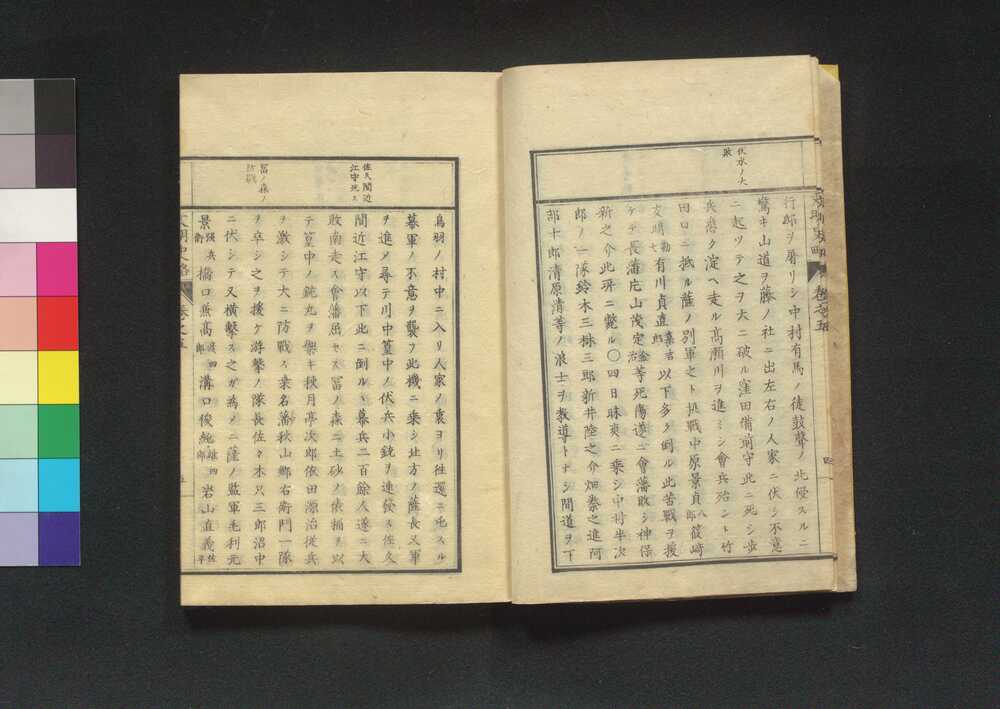 伏水ノ大
敗
行郎ヲ屠リシ中村有馬ノ徒鼓聲ノ北侵スルニ
驚キ山道ヲ藤ノ社ニ出左右ノ人家ニ伏シ不意
ニ起ツテ之ヲ大ニ破ル窪田備前守此ニ死シ步
兵悉ク淀ヘ走ル高瀬川ヲ進ミシ會兵殆ント竹
田口ニ抵ル薩ノ別軍之ト挑戰中原景貞
有川貞直以下多ク倒ル此苦戰ヲ援
ケテ長藩片山茂定等死傷遂ニ會藩敗シ神保
新之介此時ニ斃ル〇四日昧爽ニ乘シ中村半次
郎ノ一隊鈴木三樹三郎新井陸之介畑泰之進阿
部十郎清原清等ノ浪士ヲ教導トナシ間道ヲ下
卷之五
佐久間近
江守死ス
冨ノ森ノ
防戰
鳥羽ノ村中ニ入リ人家ノ裏ヨリ徃還ニ出ル
幕軍ノ不意ヲ襲フ此機ニ乘シ北方ノ薩長又軍
ヲ進メ尋テ川中篁中ノ伏兵小銃ヲ連發ス佐久
間近江守以下此ニ倒ル丶幕兵二百餘人遂ニ大
敗南走ス會藩屈セス冨ノ森ニ土砂ノ俵桶ヲ以
テ篁中ノ銃丸ヲ禦キ秋月亭次郎依田源治従兵
ヲ激シテ大ニ防戰ス桑名藩秋山郷右衛門一隊
ヲ卒シ之ヲ援ケ游擊ノ隊長佐々木只三郎沼中
ニ伏シテ又橫擊ス之ガ爲メニ薩ノ監軍毛利元
景橋口兼髙溝口俊純岩山直義
文明史略
卷之五